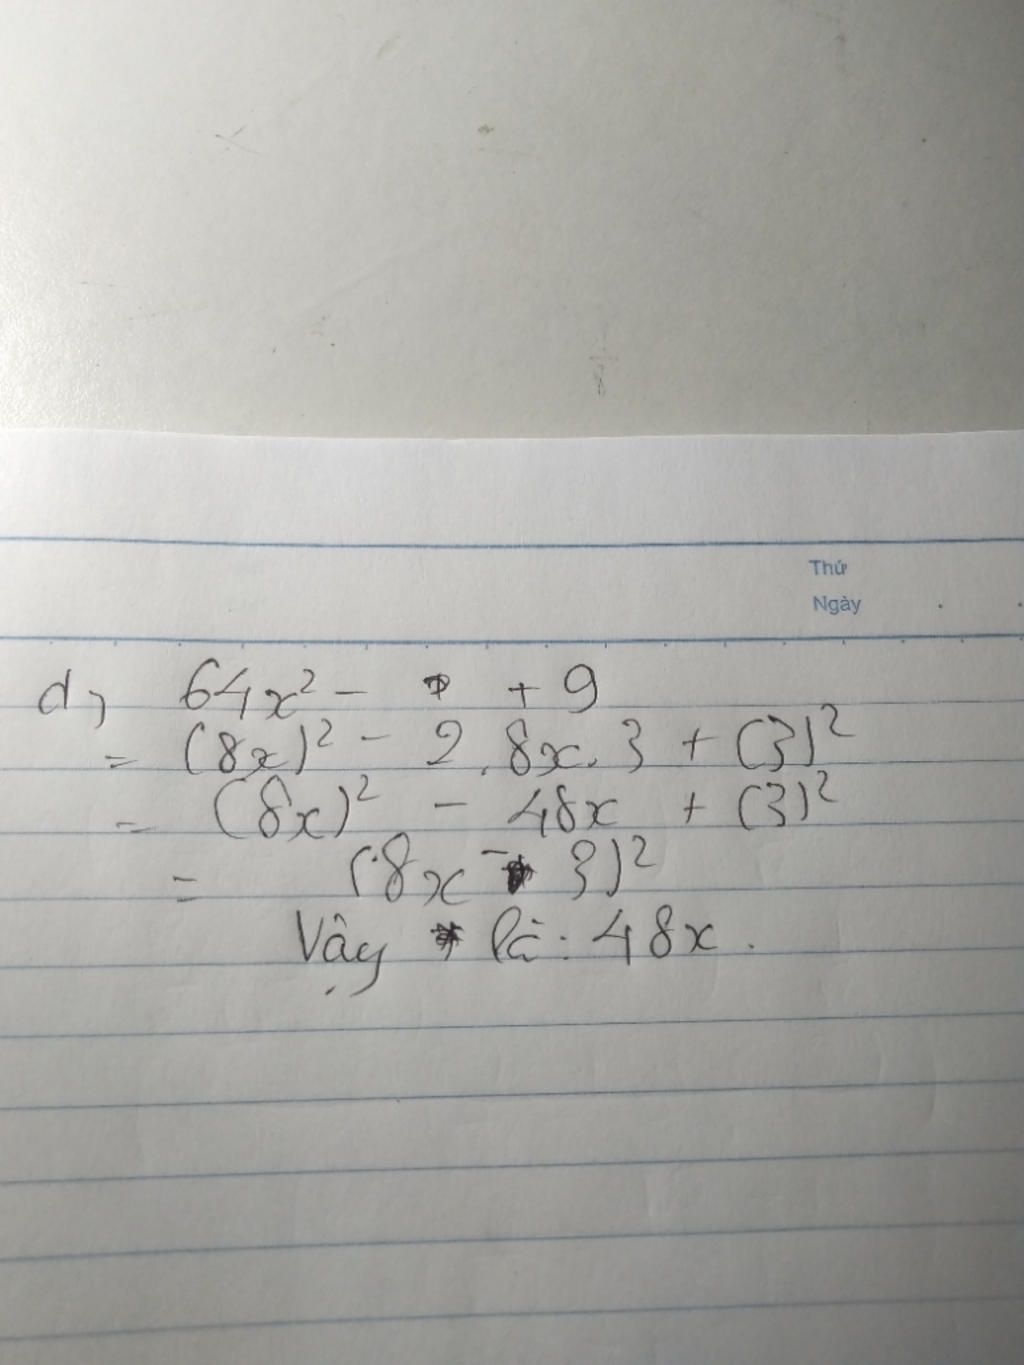 Thứ
Ngày
d, 64x² - * + 9
= (8x)² - 2.8x.3 + (3)²
= (8x)² - 48x + (3)²
= (8x - 3)²
Vậy * là: 48x.